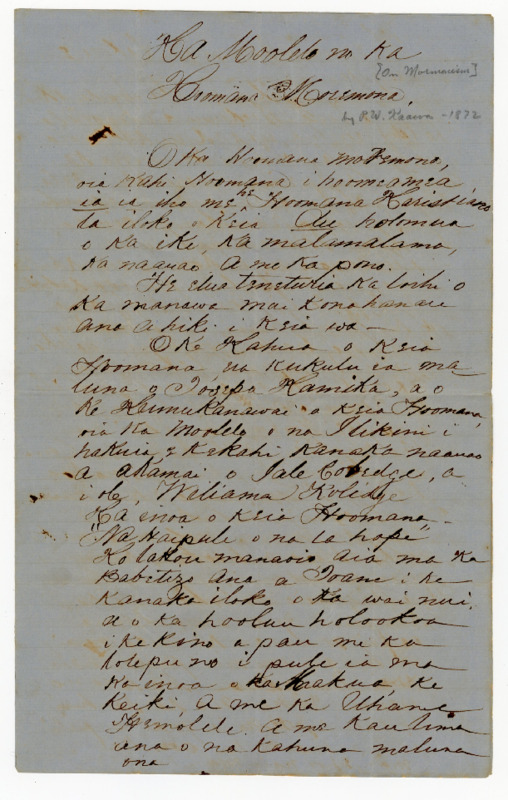 Ka Moolelo no ka
[On Mormonism]
Hoomana Moremona.
by P. W. Kaawa - 1872
O ka Hoomana Moremona,
oia kahi Hoomana i hoomeamea
ia ia iho me he Hoomana Karistiano
la iloko o keia Au holomua
o ka ike ka malamalama,
ka naauao a me ka pono.
He elua teneturia ka loihi o
ka manawa mai kona hanau
ana a hiki i keia wa—
O ke Kahua o keia
Hoomana, ua kukulu ia ma-
luna o Iosepa Kamika, a o
ke Kumukanawai o keia Hoomana,
oia ka Moolelo o na Ilikini i
hakuia e kekahi kanaka naauao
a akamai o Iale Coledge, a
i ole, Wiliama Kolidge
Ka inoa o keia Hoomana,—
"Na Haipule o na la hope"
Ko lakou manaoio aia ma ka
Babetizo ana a Ioane i ke
kanaka iloko o ka wai nui.
a o ka hooluu holookoa
i ke kino a pau me ka
lolepu no i pule ia ma
ka inoa o ka Makua, ke
Keiki, a me ka Uhane
Hemolele. A me kau lima
ana o na kahuna maluna
ona